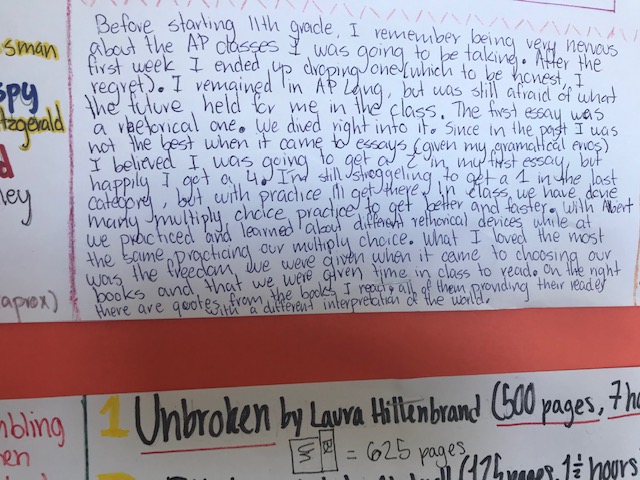 Before starting 11th grade, I remember being very nervous
about the AP classes I was going to be taking. After the
first week I ended up droping one (which to be honest, I
regret). I remained in AP Lang, but was still afraid of what
the future held for me in the class. The first essay was
a rhetorical one. We dived right into it. Since in the past I was
not the best when it came to essays (given my gramatical erros)
I believed I was going to get a 2 in my first essay, but
happily I got a 4. I'm still struggeling to get a 1 in the last
category, but with practice I'll get there. In class, we have done
many multiply choice practice to get better and faster. With Albert
we practiced and learned about different rethorical devices while at
the same practicing our multiply choice. What I loved the most
was the freedom we were given when it came to choosing our
books and that we were given time in class to read. On the right
there are quotes from the books I read, all of them providing their reader
with a different interpretation of the world.
sman
spy
tzgerald
d
ley
aprox)
mbling
en
1 Unbroken by Laura Hillenbrand (500 pages, 7 ho
= 625 pages
(125 pages, 1½ hours